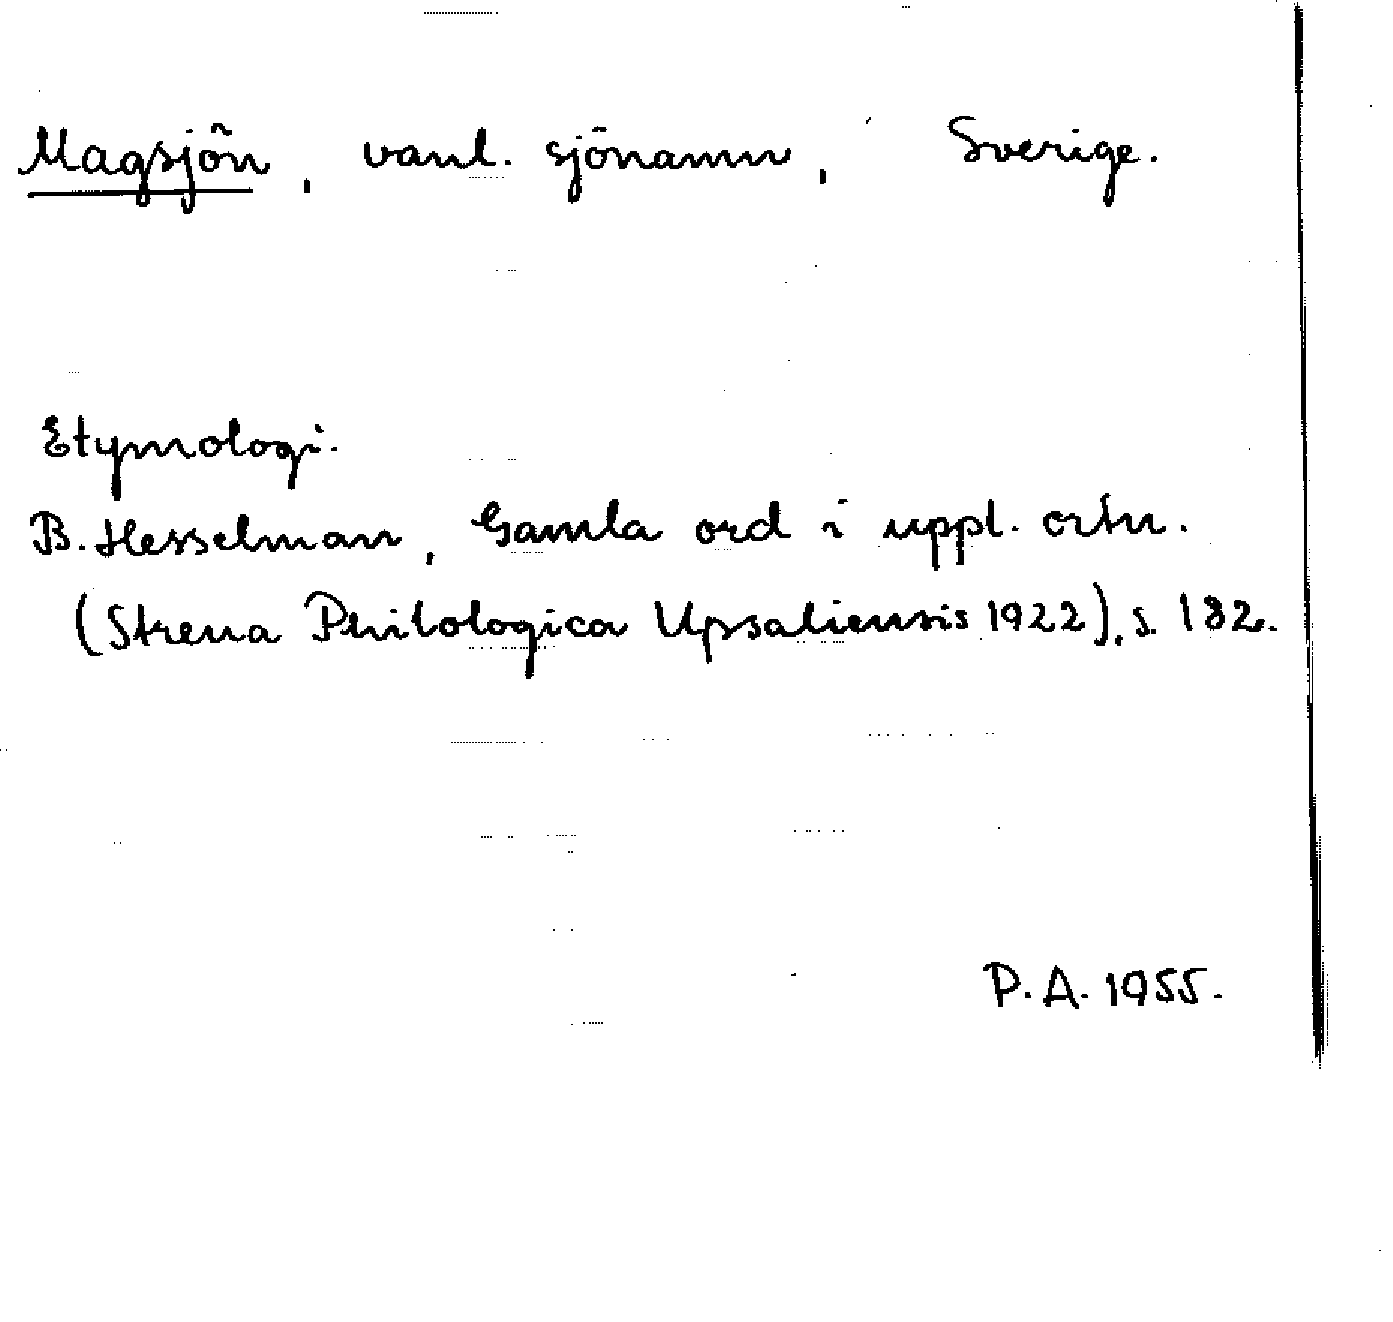 Magsjön, vanl. sjönamn, Sverige.
Etymologi.
B. Hesselman, Gamla ord i uppl. ortn.
(Strena Philologica Upsaliensis 1922), s. 182.
P. A. 1955.